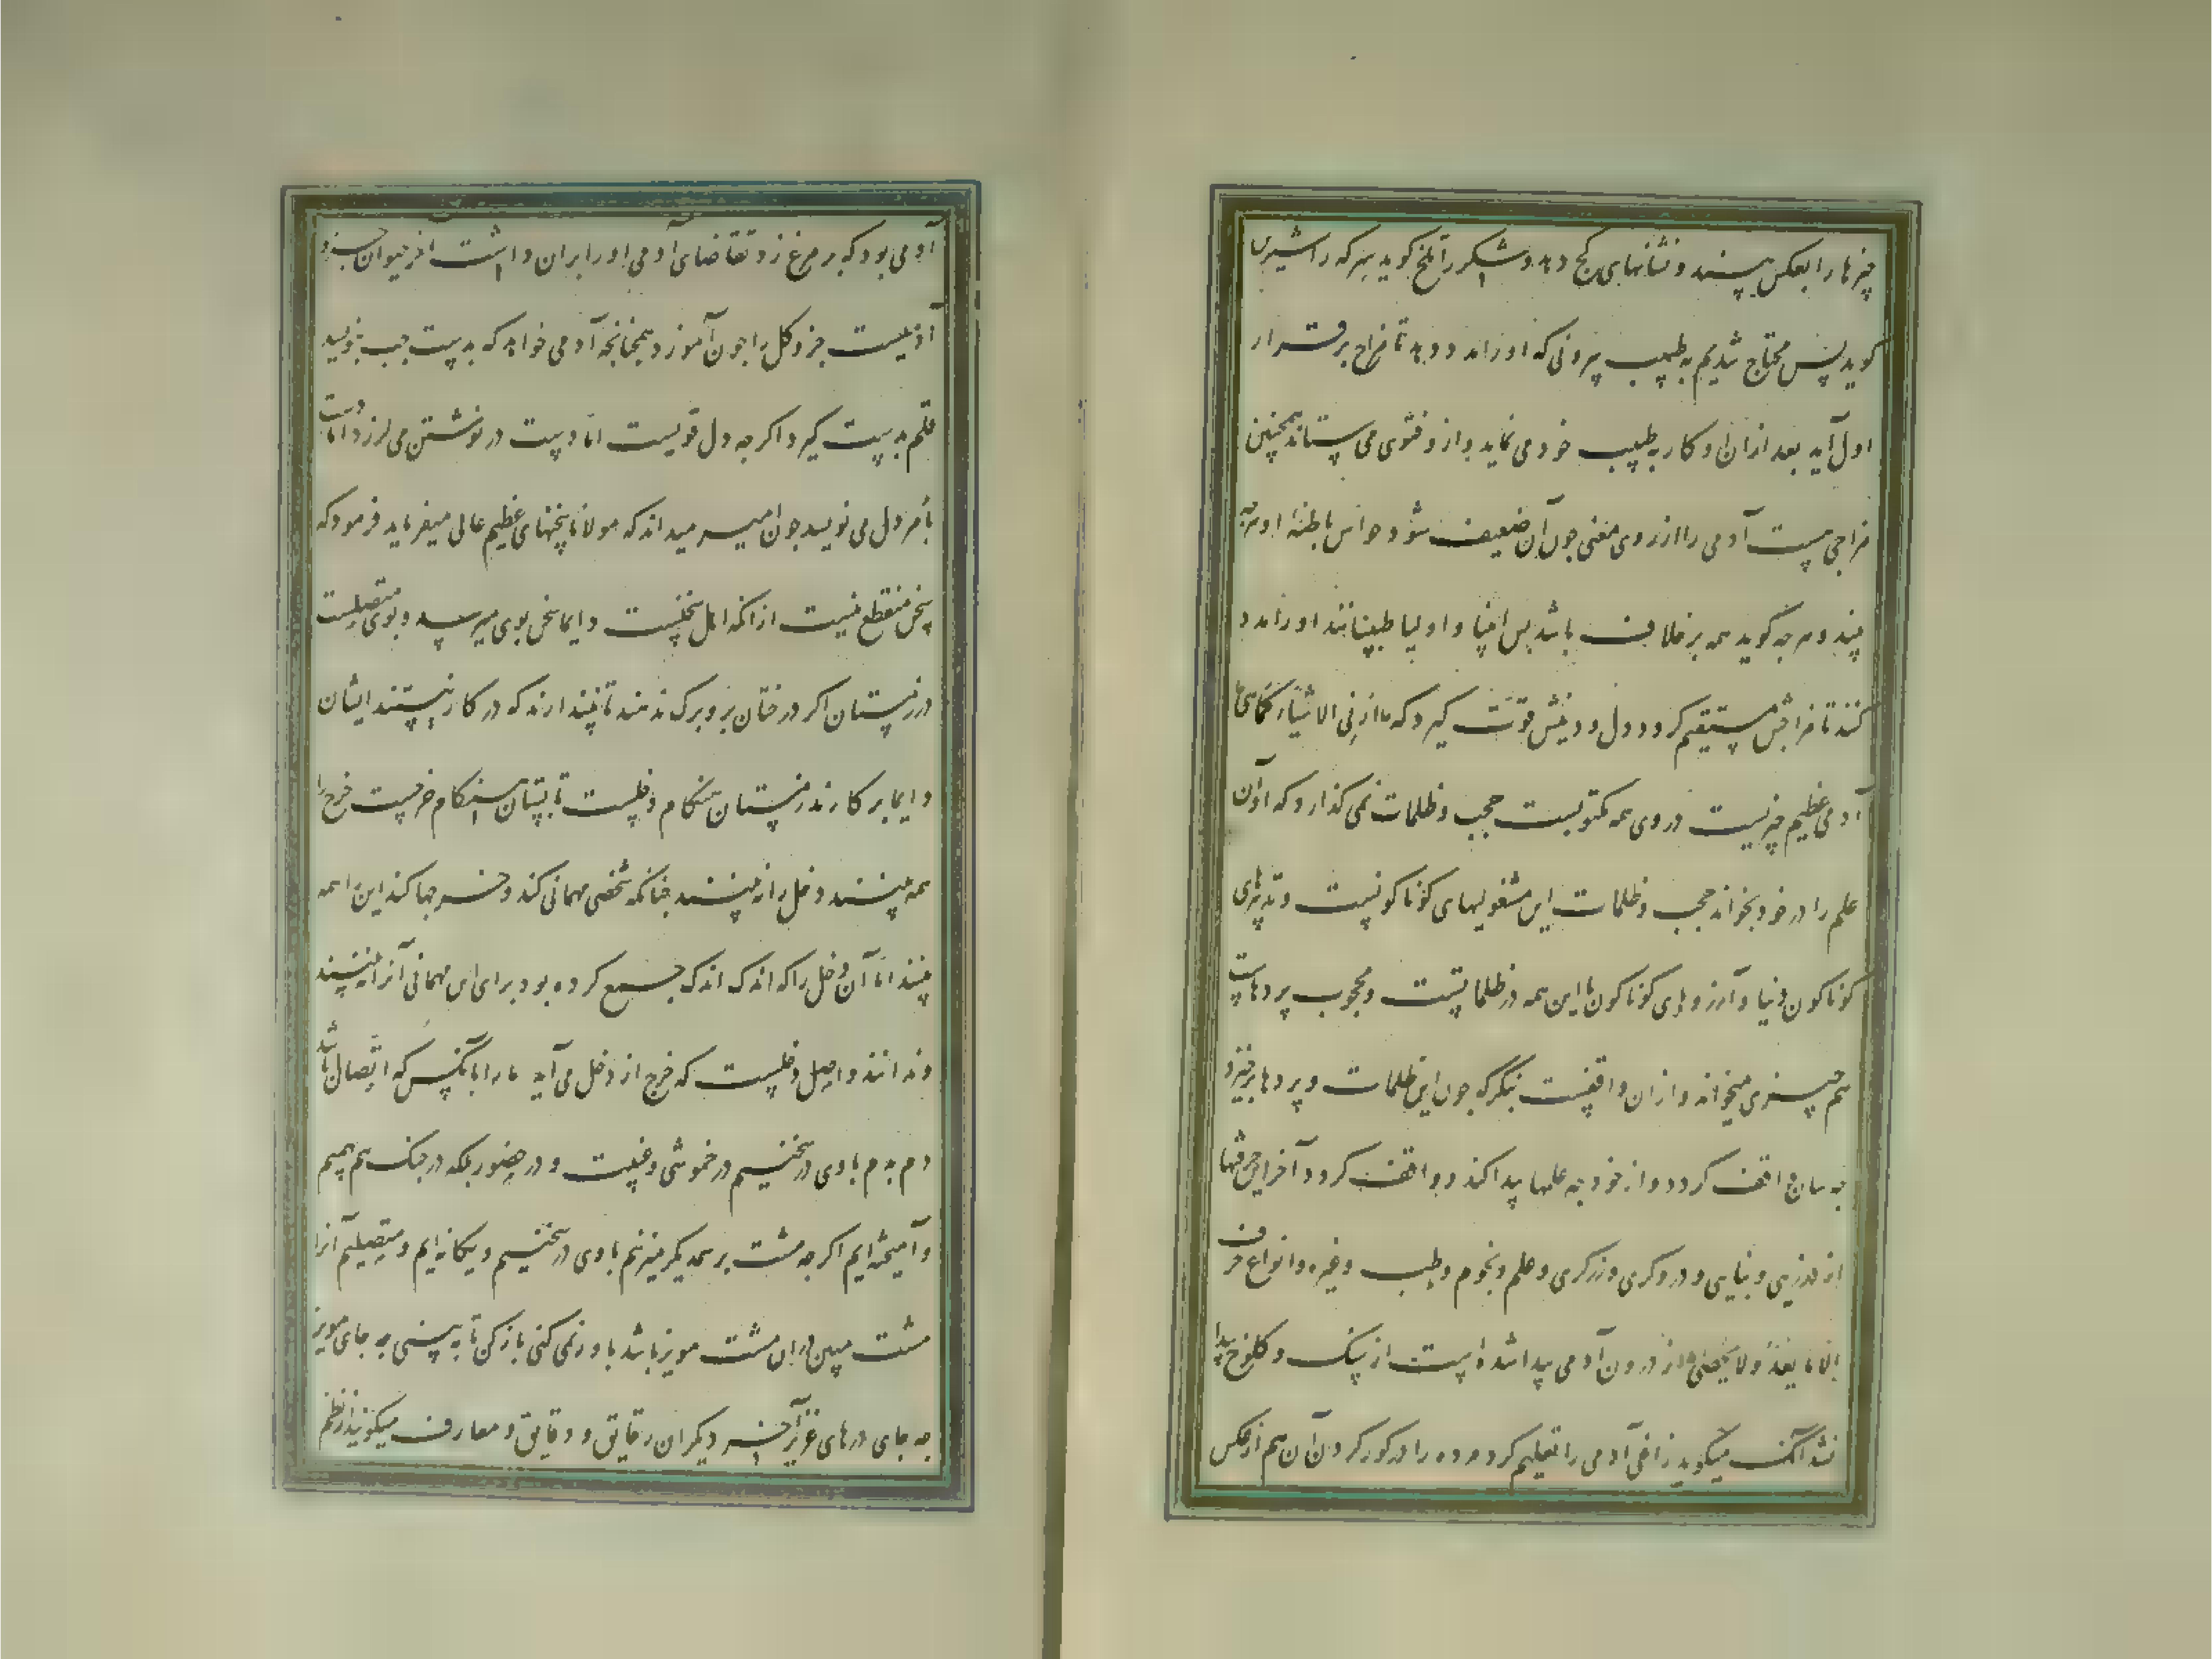 چیزها را بعکس بیند و نشانهای کج دهد و شکر را تلخ کوید سرکه را شیرین
کوید پس محتاج شدیم به طبیب بیرونی که او را مدد دهد تا مزاج برقرار
اول آید بعد ازان او کار به طبیب خود می نماید و ازو فتوی می ستاند همچنین
مزاجی هست آدمی را از روی معنی چون آن ضعیف شود حواس باطنهٔ او هرچه
بیند و هرچه کوید همه برخلاف باشد پس انبیا و اولیا طبیبانند او را مدد
کنند تا مزاجش مستقیم کردد و دل و دینش قوت کیرد که ارنی الاشیاء کما هی
آدمی عظیم چیزیست در وی همه مکتوبست حجب و ظلمات نمی کذارد که او آن
علم را در خود بخواند حجب و ظلمات این مشغولیهای کوناکونست و تدبیرهای
کوناکون دنیا و آرزوهای کوناکون با این همه در ظلماتست و محجوب پردهاست
هم چیزی میخواند و ازان واقفست بنکر که چون این ظلمات و پردها برخیزد
چه سان واقف کردد و از خود چه علمها پیدا کند و واقف کردد آخر این حرفتها
از درزیی و بنایی و درودکری و زرکری و علم و نجوم و طب و غیره و انواع حرف
الی ما لا یعد و لا یحصی از درون آدمی پیدا شده است از سنک و کلوخ پیدا
نشد آنک میکویند زاغی آدمی را تعلیم کرد مرده را در کور کردن آن هم از عکس
آدمی بود که بر مرغ زد تقاضای آدمی او را بران داشت آخر حیوان جزو
آدمیست جزو کل را چون آموزد همچنانچه آدمی خواهد که بدست چپ نویسد
قلم بدست کیرد اکرچه دل قویست اما دست در نوشتن می لرزد اما دست
بامر دل می نویسد چون امیر میداند که مولانا سخنهای عظیم عالی میفرماید فرمود که
سخن منقطع نیست از آنکه اهل سخنست دایما سخن بوی میرسد و بوی متصلست
در زمستان اکر درختان بر و برک ندهند تا نپندارند که در کار نیستند ایشان
دایما بر کارند زمستان هنکام دخلست تابستان هنکام خرجست خرج را
همه بینند دخل را نه بینند چنانکه شخصی مهمانی کند و خرجها کند این را همه
بینند اما آن دخل را که اندک اندک جمع کرده بود برای این مهمانی آنرا نه بینند
و ندانند و اصل دخلست که خرج از دخل می آید ما را با آنکس که اتصال باشد
دم بدم با وی در سخنیم در خموشی و غیبت و در حضور بلکه در جنک هم بهمیم
و آمیخته ایم اکرچه مشت بر همدیکر میزنیم با وی در سخنیم و یکانه ایم و متصلیم آنرا
مشت مبین دران مشت مویز باشد باور نمی کنی باز کن تا به بینی چه جای مویز
چه جای درهای عزیز آخر دیکران رقایق و دقایق و معارف میکویند از نظم